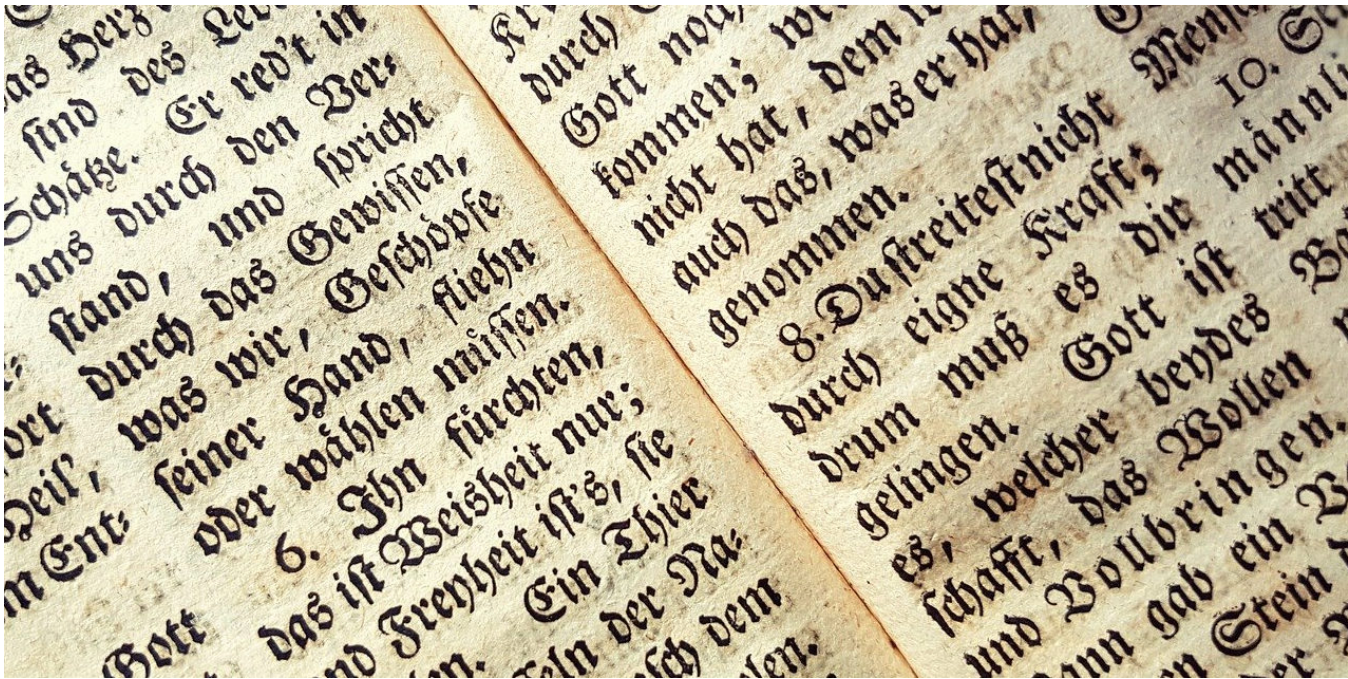 Herz
ſind des
Schätze. Er red't in
uns durch den Ver⸗
ſtand, und ſpricht
durch das Gewiſſen,
was wir, Geſchöpfe
ſeiner Hand, fliehn
oder wählen müſſen.
6. Ihn fürchten,
das iſt Weisheit nur;
Freyheit iſt's, ſie
Ein Thier
der Na⸗
dem
Heil',
Ent⸗
Gott
durch
Gott noch
kommen;
nicht hat, dem
auch das, was er hat,
genommen.
8. Du ſtreiteſt nicht
durch eigne Kraft;
drum muß es dir
gelingen. Gott iſt
es, welcher beydes
ſchafft, das Wollen
und Vollbringen.
gab ein
Stein
10.
tritt